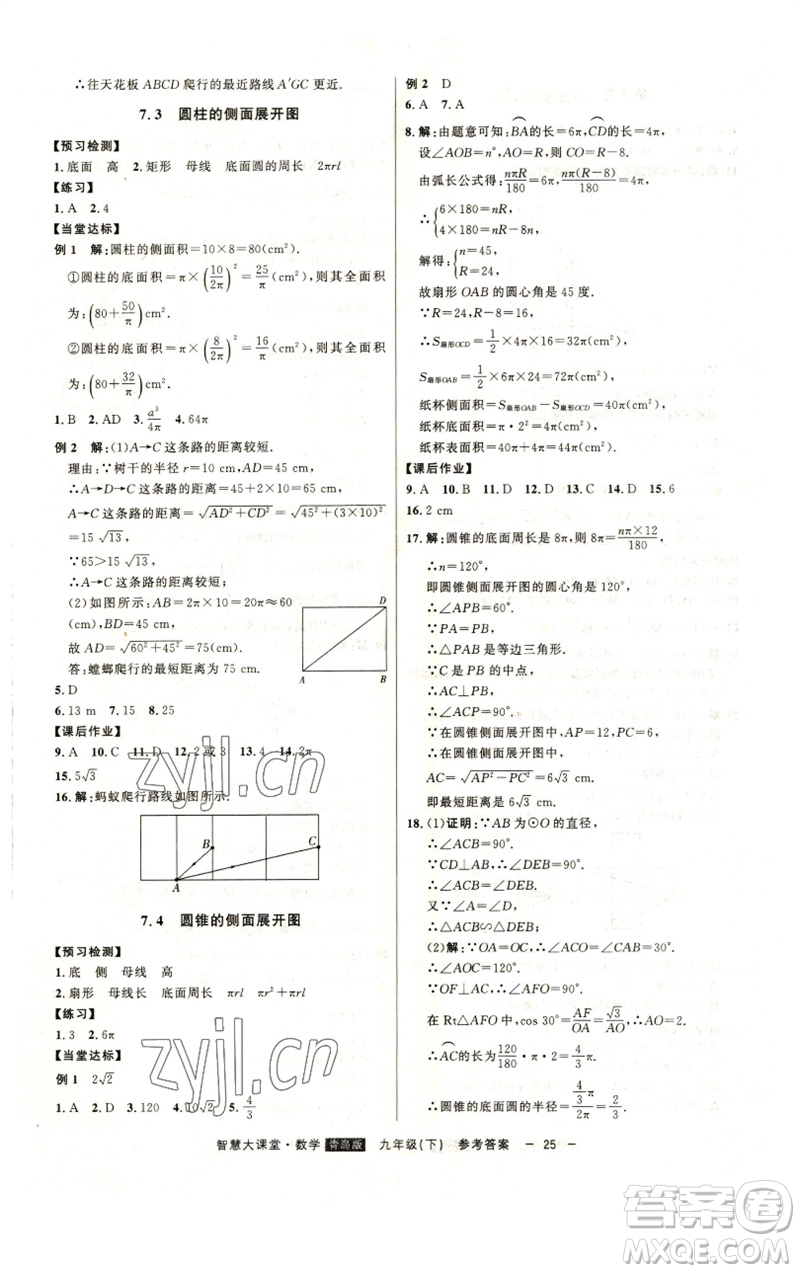 ∴往天花板 ABCD 爬行的最近路线 A′GC 更近.
7.3 圆柱的侧面展开图
【预习检测】
1.底面 高 2.矩形 母线 底面圆的周长 2πrl
【练习】
1.A 2.4
【当堂达标】
例 1 解:圆柱的侧面积=10×8=80(cm²).
①圆柱的底面积=π×(10/2π)²=25/π(cm²),则其全面积
为:(80+50/π)cm².
②圆柱的底面积=π×(8/2π)²=16/π(cm²),则其全面积
为:(80+32/π)cm².
1.B 2.AD 3.a³/4π 4.64π
例 2 解:(1)A→C 这条路的距离较短.
理由:∵树干的半径 r=10 cm,AD=45 cm,
∴A→D→C 这条路的距离=45+2×10=65(cm),
A→C 这条路的距离=√(AD²+CD²)=√(45²+(3×10)²)
=15√13,
∵65>15√13,
∴A→C 这条路的距离较短;
(2)如图所示:AB=2π×10=20π≈60
(cm),BD=45 cm,
故 AD=√(60²+45²)=75(cm).
答:螳螂爬行的最短距离约为 75 cm.
D
A
B
5.D
6.13 m 7.15 8.25
【课后作业】
9.A 10.C 11.D 12.2 或 8 13.4 14.2π
15.5√3
16.解:蚂蚁爬行路线如图所示.
B
C
A
7.4 圆锥的侧面展开图
【预习检测】
1.底 侧 母线 高
2.扇形 母线长 底面周长 πrl πr²+πrl
【练习】
1.3 2.6π
【当堂达标】
例 1 2√2
1.A 2.D 3.120 4.10√2 5.4/3
例 2 D
6.A 7.A
8.解:由题意可知:⌒BA的长=6π,⌒CD的长=4π,
设∠AOB=n°,AO=R,则 CO=R-8.
由弧长公式得:nπR/180=6π,nπ(R-8)/180=4π,
∴{6×180=nR,
4×180=nR-8n,
解得:{n=45,
R=24,
故扇形 OAB 的圆心角是 45 度.
∵R=24,R-8=16,
∴S扇形OCD=1/2×4π×16=32π(cm²),
S扇形OAB=1/2×6π×24=72π(cm²),
纸杯侧面积=S扇形OAB-S扇形OCD=40π(cm²),
纸杯底面积=π·2²=4π(cm²),
纸杯表面积=40π+4π=44π(cm²).
【课后作业】
9.A 10.B 11.D 12.D 13.C 14.D 15.6
16.2 cm
17.解:圆锥的底面周长是 8π,则 8π=nπ×12/180,
∴n=120°,
即圆锥侧面展开图的圆心角是 120°,
∴∠APB=60°.
∵PA=PB,
∴△PAB 是等边三角形.
∵C 是 PB 的中点,
∴AC⊥PB,
∴∠ACP=90°.
∵在圆锥侧面展开图中,AP=12,PC=6,
∴在圆锥侧面展开图中,
AC=√(AP²-PC²)=6√3(cm).
即最短距离是 6√3 cm.
18.(1)证明:∵AB 为⊙O 的直径,
∴∠ACB=90°.
∵CD⊥AB,∴∠DEB=90°.
∴∠ACB=∠DEB.
又∵∠A=∠D,
∴△ACB∽△DEB.
(2)解:∵OA=OC,∴∠ACO=∠CAB=30°.
∴∠AOC=120°.
∵OF⊥AC,∴∠AFO=90°.
在 Rt△AFO 中,cos 30°=AF/OA=√3/OA,∴AO=2.
∴⌒AC的长为120/180·π·2=4/3π.
∴圆锥的底面圆的半径=4/3π/2π=2/3.
智慧大课堂·数学 青岛版 九年级(下) 参考答案 - 25 -
zyjl.cn
zyjl.cn
答案圈
MXQE.COM